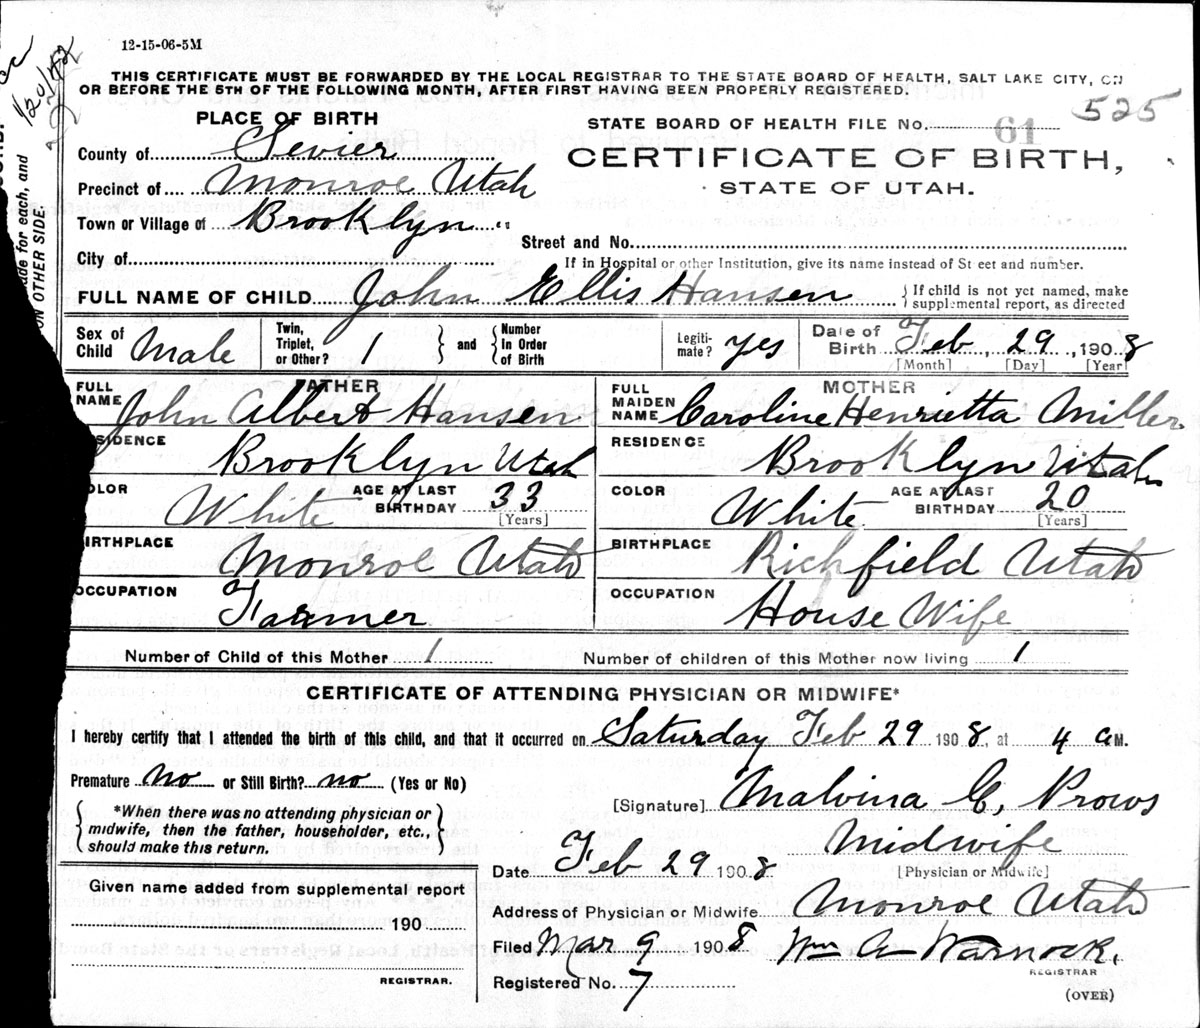 12-15-06-5M
1/20/42
THIS CERTIFICATE MUST BE FORWARDED BY THE LOCAL REGISTRAR TO THE STATE BOARD OF HEALTH, SALT LAKE CITY, ON
OR BEFORE THE 5TH OF THE FOLLOWING MONTH, AFTER FIRST HAVING BEEN PROPERLY REGISTERED.
525
PLACE OF BIRTH
STATE BOARD OF HEALTH FILE No. 61
County of Sevier
CERTIFICATE OF BIRTH,
Precinct of Monroe Utah
STATE OF UTAH.
Town or Village of Brooklyn "
Street and No.
City of
If in Hospital or other Institution, give its name instead of St eet and number.
FULL NAME OF CHILD John Ellis Hansen
{If child is not yet named, make
supplemental report, as directed
Sex of Child Male
Twin, Triplet, or Other? 1 } and { Number In Order of Birth
Legitimate? yes
Date of Birth Feb, 29, 1908
[Month] [Day] [Year]
FATHER
FULL NAME John Albert Hansen
RESIDENCE Brooklyn Utah
COLOR White AGE AT LAST BIRTHDAY 33
[Years]
BIRTHPLACE Monroe Utah
OCCUPATION Farmer
MOTHER
FULL MAIDEN NAME Caroline Henrietta Miller
RESIDENCE Brooklyn Utah
COLOR White AGE AT LAST BIRTHDAY 20
[Years]
BIRTHPLACE Richfield Utah
OCCUPATION House Wife
Number of Child of this Mother 1 Number of children of this Mother now living 1
CERTIFICATE OF ATTENDING PHYSICIAN OR MIDWIFE*
I hereby certify that I attended the birth of this child, and that it occurred on Saturday Feb 29 1908, at 4 a M.
Premature no or Still Birth? no (Yes or No)
{ *When there was no attending physician or
midwife, then the father, householder, etc.,
should make this return. }
[Signature] Malvina C, Prows
Midwife
Date Feb 29 1908 [Physician or Midwife]
Address of Physician or Midwife Monroe Utah
Given name added from supplemental report
190
REGISTRAR.
Filed Mar 9 1908 Wm A Warnock.
REGISTRAR
Registered No. 7
(OVER)
made for each, and
ON OTHER SIDE.